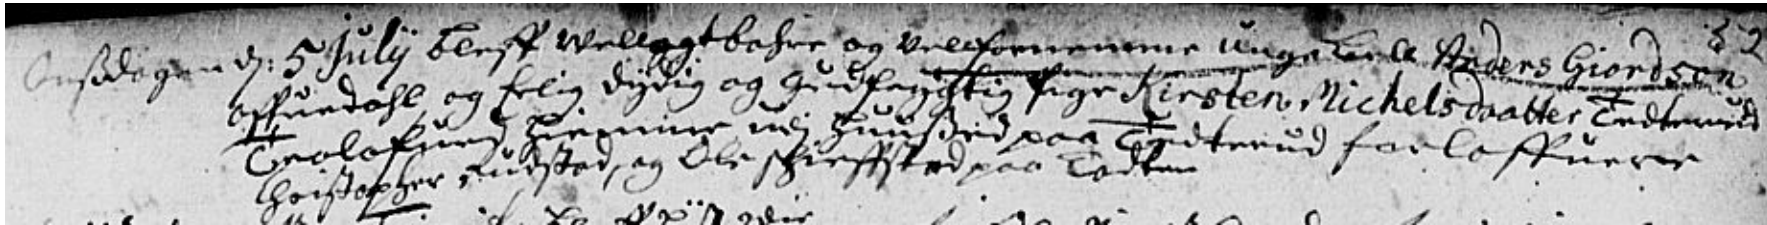 Onsdagen d: 5 July bleff Wellagtbahre og velfornemme unge karl Anders Giordson
og dydig og gudfrygtig pige Kirsten Michelsdaatter Tedterud
Trolofued hiemme udj huuset paa Tedterud forloffuere
Christopher Rudstad, og Ole paa Todten